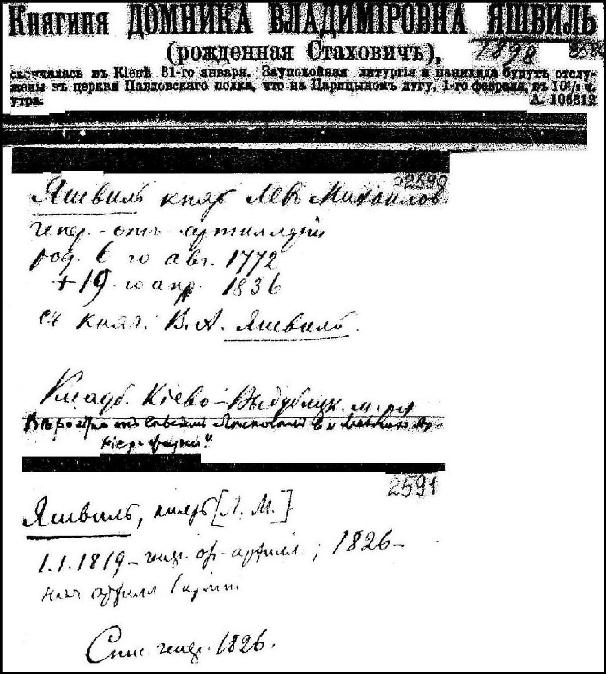 Княгиня ДОМНИКА ВЛАДИМІРОВНА ЯШВИЛЬ
(рожденная Стаховичъ),
1898
скончалась въ Кіевѣ 31-го января. Заупокойная литургія и панихида будутъ отслу-
жены въ церкви Павловскаго полка, что на Царицыномъ лугу, 1-го февраля, въ 10½ ч.
утра. А. 106312
2590
Яшвиль князь Левъ Михайлов
генер.-отъ артиллеріи
род. 6 го авг. 1772
+ 19-го апр. 1836
съ княг. В. А. Яшвиль.
Кладб. Кіево-Выдубицк. м-ря
2591
Яшвиль, князь [Л. М.]
1.1.1819 – генер. от артилл; 1826 –
нач артилл 1 арміи
Спис генер. 1826.